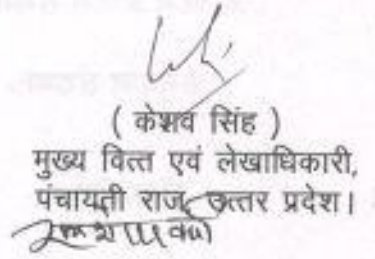 ( केशव सिंह )
मुख्य वित्त एवं लेखाधिकारी,
पंचायती राज, उत्तर प्रदेश।